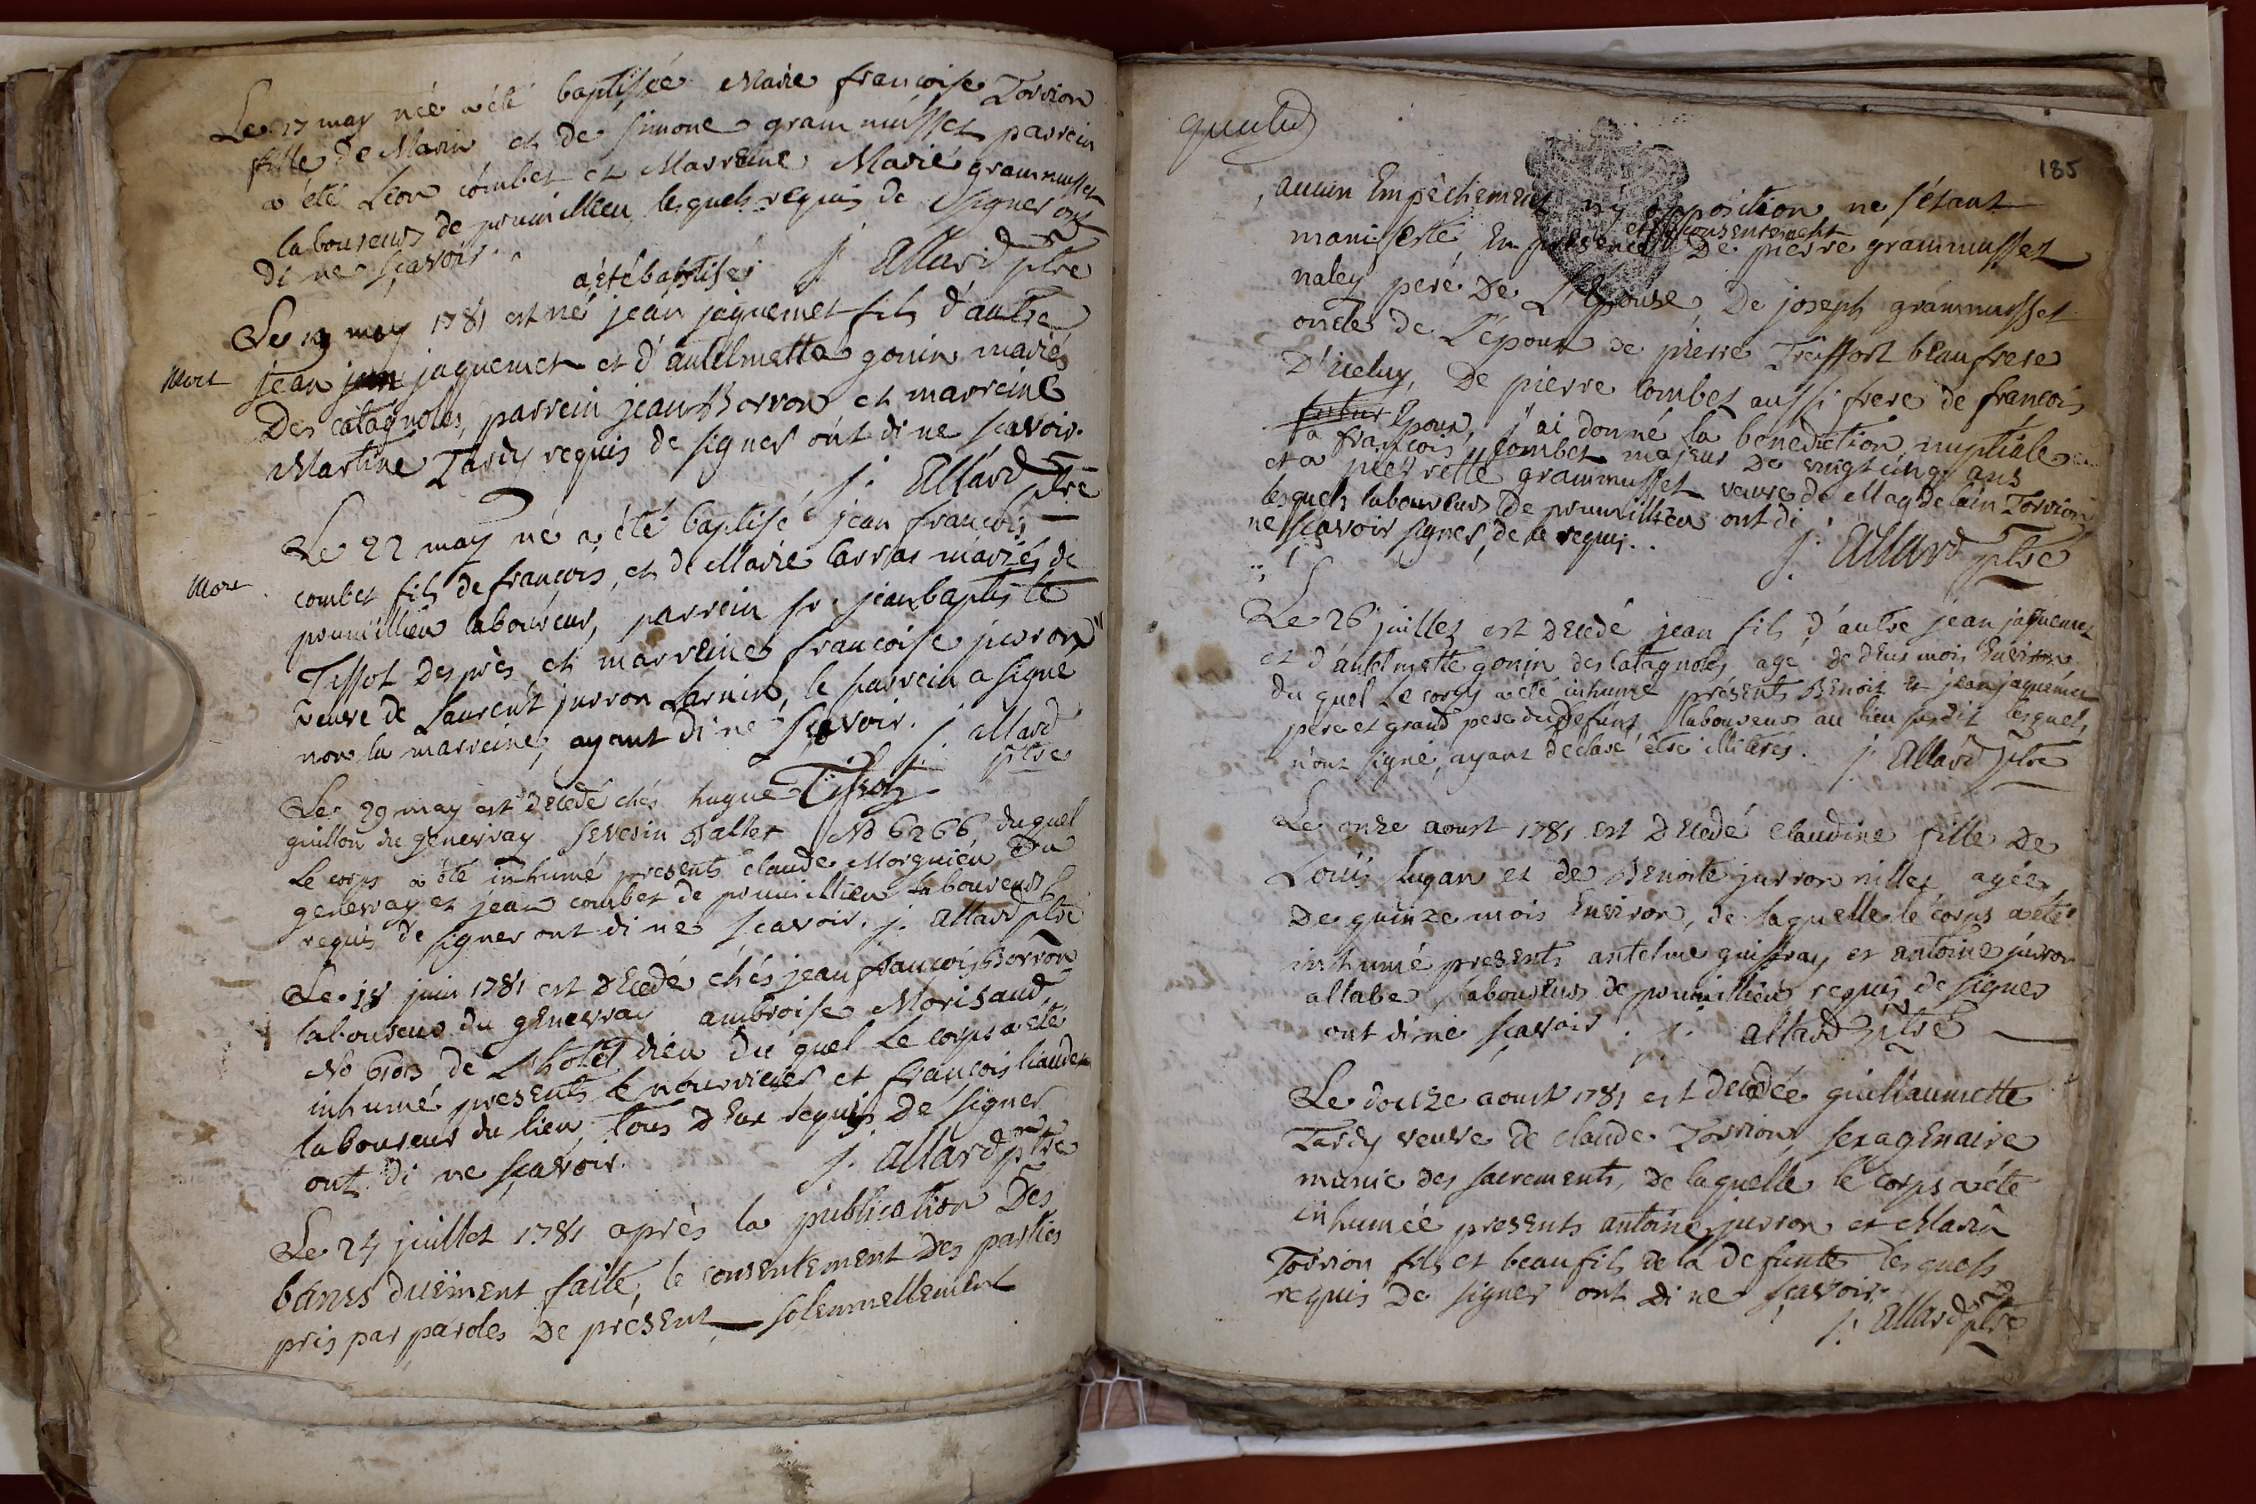 Le 17 may née a été baptisée Marie françoise Torrion
fille de Marin et de simone grammusset parrein
a été Leon combet et Marreine Marie grammusset
laboureurs de poumillieu lesquels requis de signer ont
di ne sçavoir. j. allard ptre
a été baptisé
Le 19 may 1781 est né jean jaquemet fils d'autre
mort
jean jaquemet et d'antelmette gonin mariés
Des catagnoles, parrein jean Borron et marreine
Martine Tardy requis de signer ont di ne scavoir.
j. allard ptre
Le 22 may né a été baptisé jean françois
mort
combet fils de françois, et de Marie Carras mariés de
poumillieu laboureurs, parrein sr. jean baptiste
Tissot Desprès et marreine françoise jurron
veuve de Laurent jurron Larnin, le parrein a signé
non la marreine, ayant di ne scavoir. j. allard
ptre
Tissot
Le 29 may est decedé chés hugue
guillon du genevray severin vallet No 6266 duquel
Le corps a été inhumé presents claude Morgnieu du
genevray et jean combet de poumillieu laboureurs
requis de signer ont di ne scavoir. j. allard ptre
Le 18 juin 1781 est decedé chés jean françois Borron
laboureur du genevray ambroise Morisaud
No de L'hotel dieu du quel Le corps a été
inhumé presents le nourricier et françois
laboureur du lieu, tous deux requis de signer
ont di ne sçavoir. j. allard ptre
Le 24 juillet 1781 après la publication Des
bancs duëment faite, le consentement des parties
pris par paroles de présent solemnellement
185
aucun Empêchement ny opposition ne s'étant
et consentement
manifesté, En présence De pierre grammusset
naley peré De L'Epouse, De joseph grammusset
oncle de L'épour de pierre Treffort beaufrere
D'iceluy, De pierre combet aussi frere de françois
futur Epour, j'ai donné la benediction nuptiale
a françois combet majeur De vingt cinq ans
et a pierrette grammusset veuve de Magdelain Torrion
lesquels laboureurs De poumillieu ont di
ne scavoir signer, de ce requis. j. allard ptre
Le 26 juillet est decedé jean fils d'autre jean jaquemet
et d'antelmette gonin des catagnoles agé de deux mois Environ
du quel Le corps a été inhumé présents Benoit et jean jaquemet
pere et grand pere du defunt, laboureurs au lieu susdit lesquels,
n'ont signé, ayant declaré être illiterés. j. allard ptre
Le onze aoust 1781 est decedé claudine fille De
Loüis lugan et de Benoite jurron nillet agée
De quinze mois Environ, de laquelle le corps a été
inhumé presents antelme guiffray et antoine jurron
allabe, laboureurs de poumillieu requis de signer
ont di ne scavoir. j. allard ptre
Le douze aoust 1781 est decedée guillaumette
Tardy veuve de claude Torrion, sexagenaire
munie des sacrements, de laquelle le corps a été
inhumée presents antoine jurron et Marin
Torrion fils et beaufils de la defunte lesquels
requis De signer ont di ne scavoir.
j. allard ptre